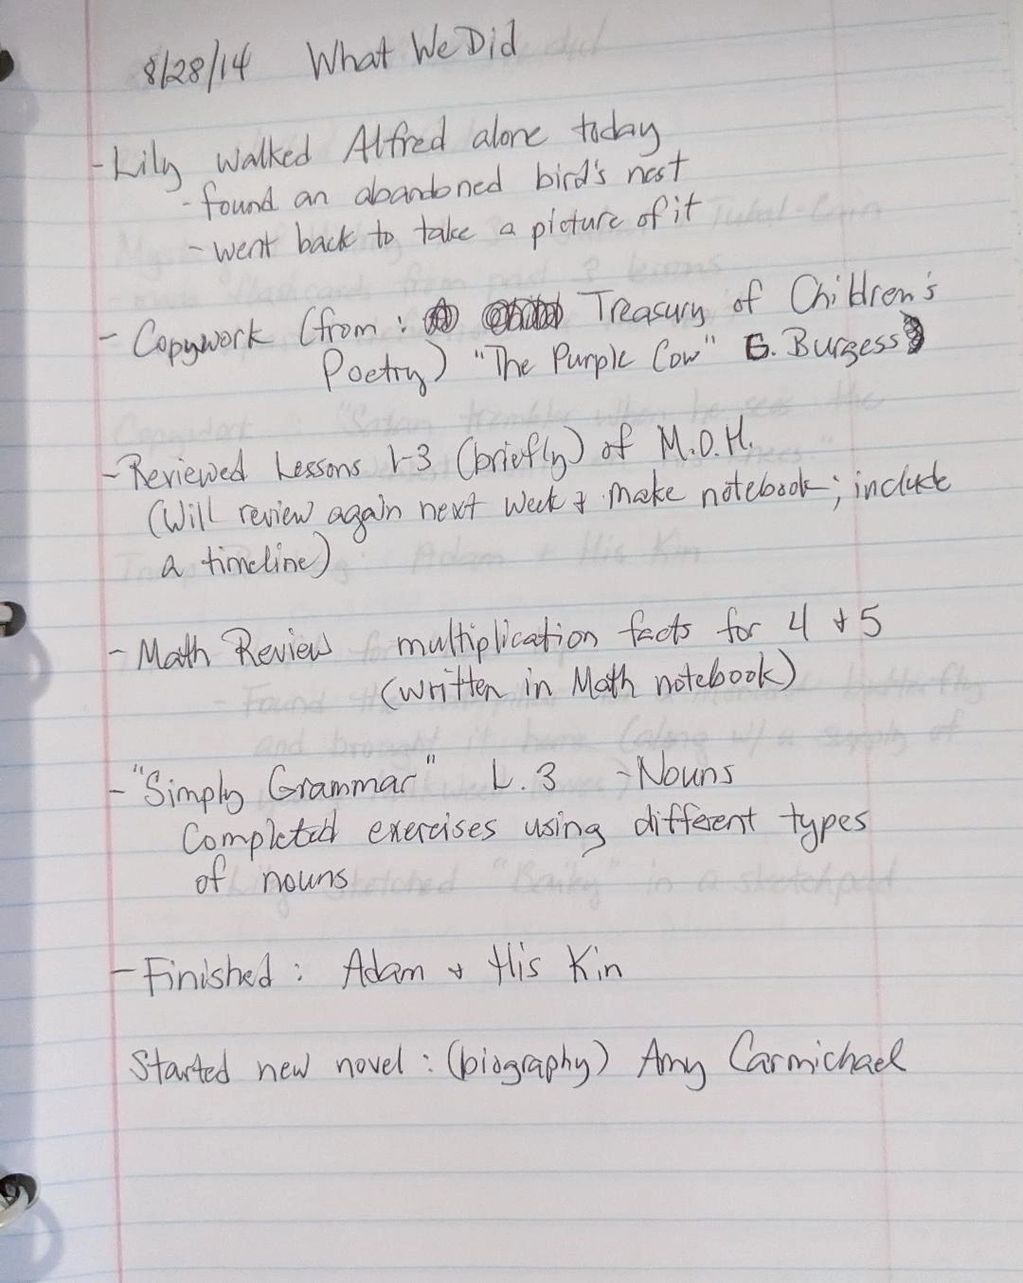 8/28/14 What We Did
- Lily walked Alfred alone today
- found an abandoned bird's nest
- went back to take a picture of it
- Copywork (from: Treasury of Children's
Poetry) "The Purple Cow" G. Burgess
- Reviewed Lessons 1-3 (briefly) of M.O.H.
(Will review again next week & make notebook; include
a timeline)
- Math Review multiplication facts for 4 & 5
(written in Math notebook)
- "Simply Grammar" L. 3 - Nouns
Completed exercises using different types
of nouns
- Finished: Adam & His Kin
Started new novel: (biography) Amy Carmichael